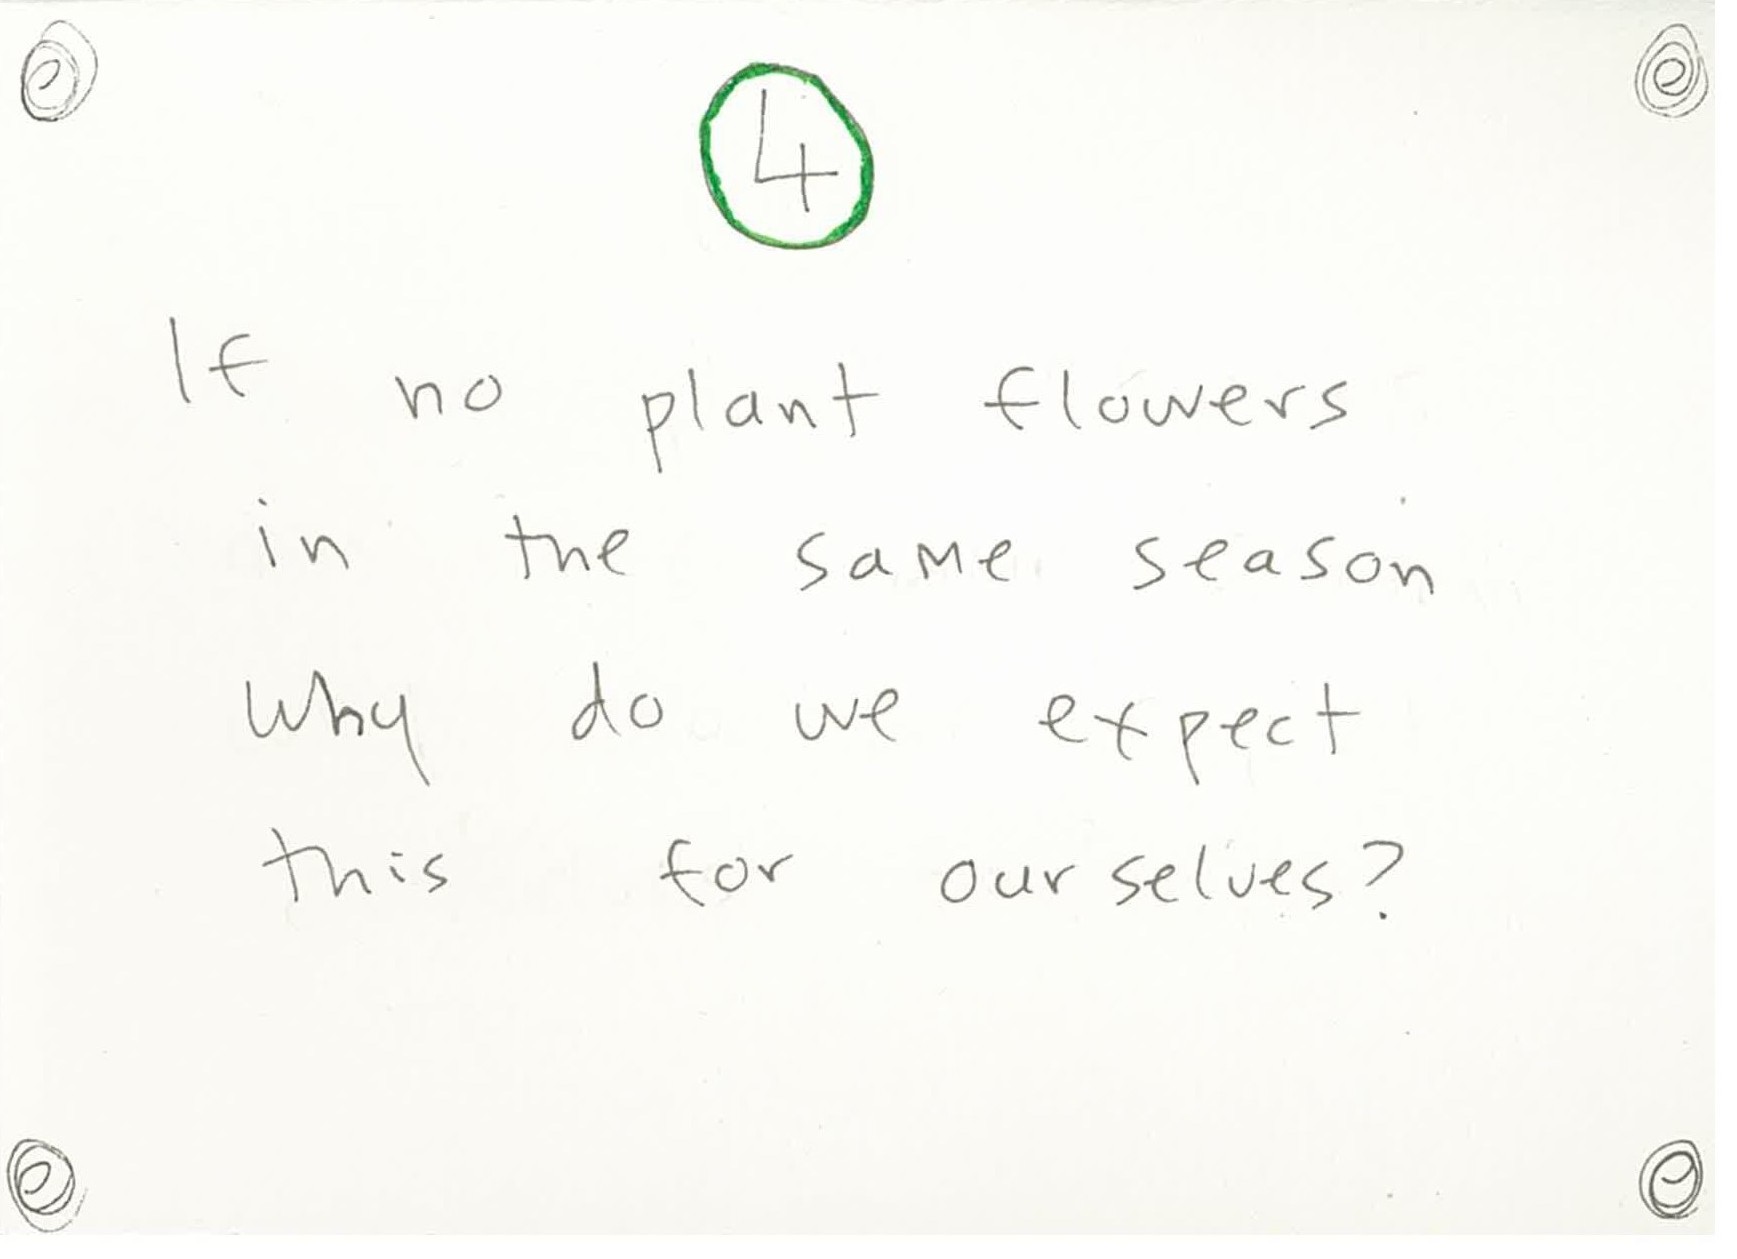 4
If no plant flowers
in the same season
why do we expect
this for ourselves?